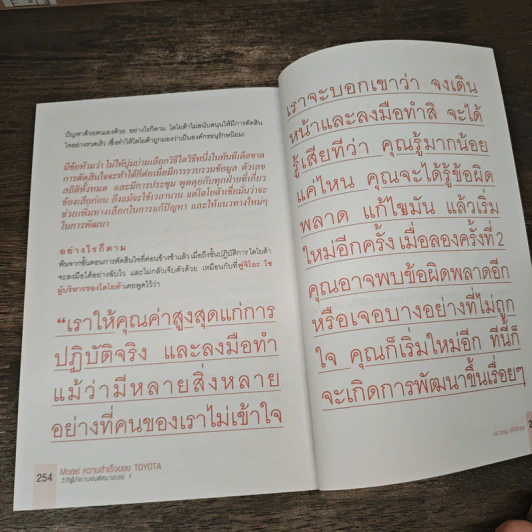 ปัญหาด้วยตนเองด้วย อย่างไรก็ตาม โตโยต้าไม่สนับสนุนให้มีการตัดสิน
ใจอย่างรวดเร็ว (ซึ่งทำให้โตโยต้าถูกมองว่าเป็นองค์กรอนุรักษนิยม)
มีข้อห้ามว่า ไม่ให้บุ่มบ่ามเลือกวิธีใดวิธีหนึ่งในทันทีเด็ดขาด
การตัดสินใจจะทำได้ก็ต่อเมื่อมีการรวบรวมข้อมูล ตัวเลข
สถิติทั้งหมด และมีการประชุม พูดคุยกับทุกฝ่ายที่เกี่ยว
ข้องเสียก่อน ถึงแม้จะใช้เวลานาน แต่โตโยต้าเชื่อมั่นว่าจะ
ช่วยเพิ่มทางเลือกในการแก้ปัญหา และให้แนวทางใหม่ๆ
ในการพัฒนา
อย่างไรก็ตาม
พ้นจากขั้นตอนการตัดสินใจที่ค่อนข้างช้าแล้ว เมื่อถึงขั้นปฏิบัติการ โตโยต้า
จะลงมือได้อย่างฉับไว และไม่กลัวเจ็บตัวด้วย เหมือนกับที่ฟูจิโอะ โช
ผู้บริหารของโตโยต้าเคยพูดไว้ว่า
“เราให้คุณค่าสูงสุดแก่การ
ปฏิบัติจริง และลงมือทำ
แม้ว่ามีหลายสิ่งหลาย
อย่างที่คนของเราไม่เข้าใจ
254
Model ความสำเร็จของ TOYOTA
เราจะบอกเขาว่า จงเดิน
หน้าและลงมือทำสิ จะได้
รู้เสียทีว่า คุณรู้มากน้อย
แค่ไหน คุณจะได้รู้ข้อผิด
พลาด แก้ไขมัน แล้วเริ่ม
ใหม่อีกครั้ง เมื่อลองครั้งที่ 2
คุณอาจพบข้อผิดพลาดอีก
หรือเจอบางอย่างที่ไม่ถูก
ใจ คุณก็เริ่มใหม่อีก ทีนี้ก็
จะเกิดการพัฒนาขึ้นเรื่อยๆ